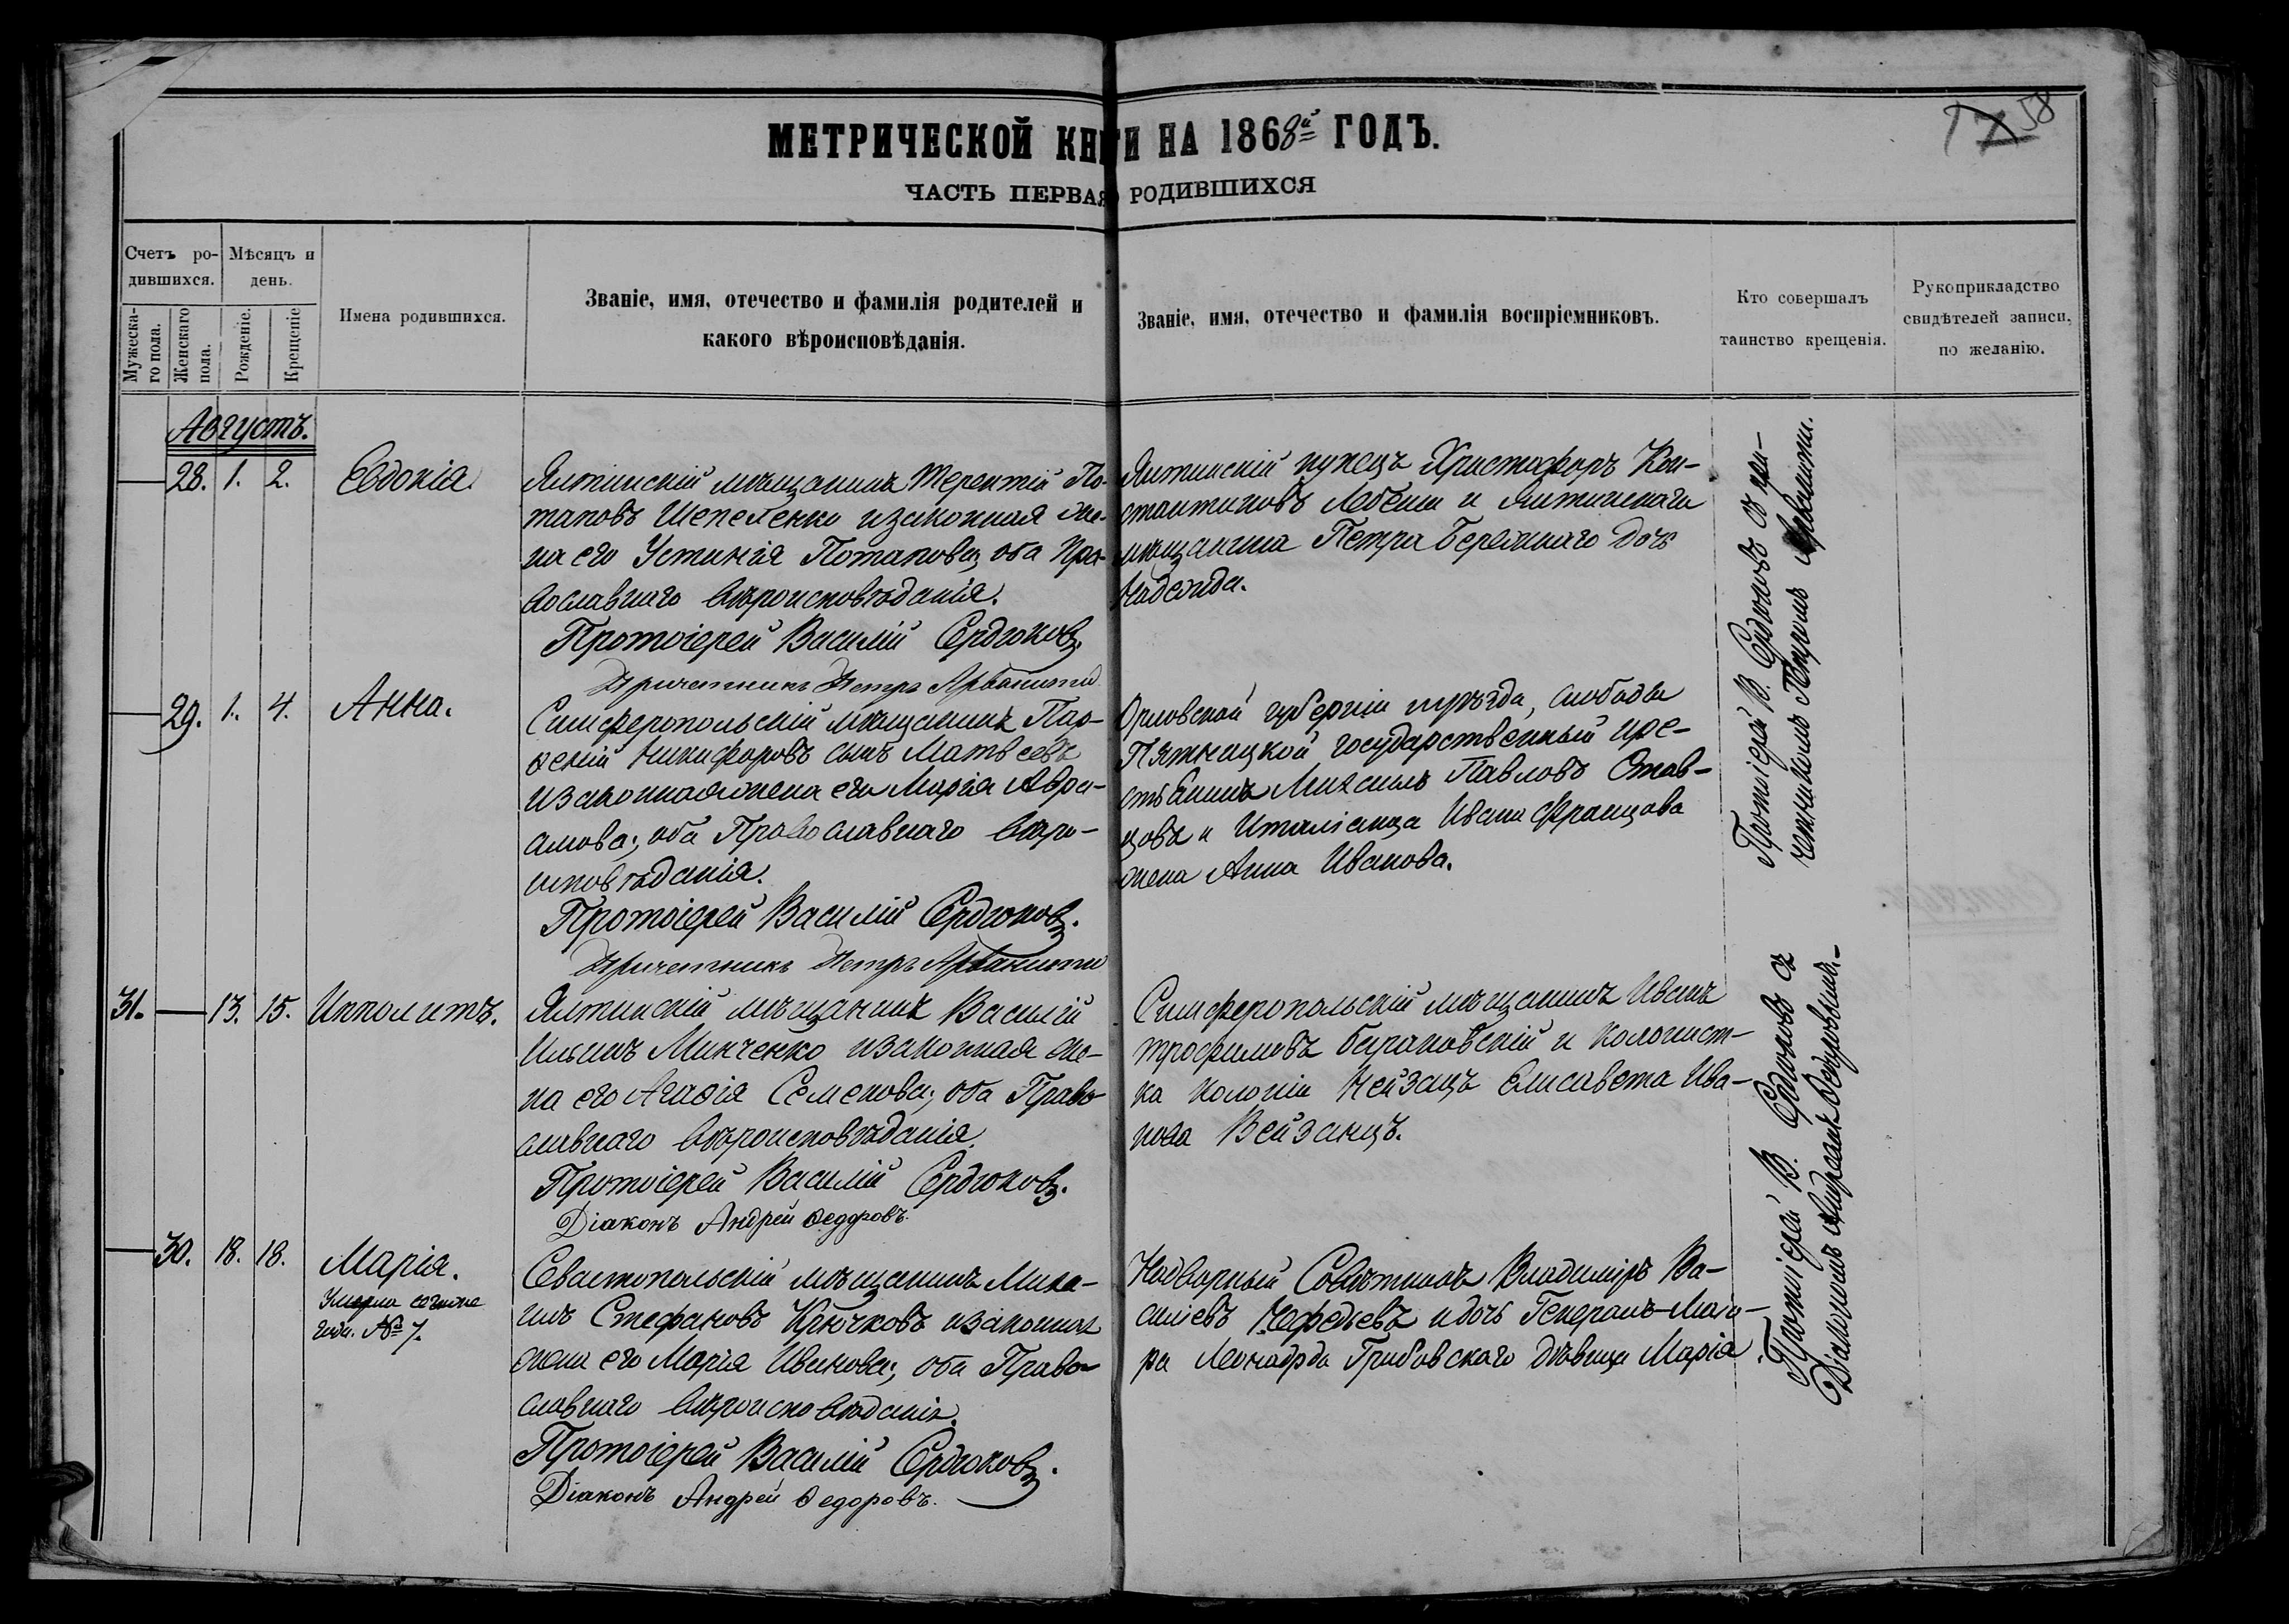 58
МЕТРИЧЕСКОЙ КНИГИ НА 1868й ГОДЪ.
ЧАСТЬ ПЕРВАЯ О РОДИВШИХСЯ
Счетъ ро-
дившихся.
Мужеска-
го пола.
Женскаго
пола.
Мѣсяцъ и
день.
Рожденіе.
Крещеніе
Имена родившихся.
Званіе, имя, отечество и фамилія родителей и
какого вѣроисповѣданія.
Званіе, имя, отечество и фамилія воспріемниковъ.
Кто совершалъ
таинство крещенія.
Рукоприкладство
свидѣтелей записи,
по желанію.
Августъ.
28. 1. 2. Евдокія.
Ялтинскій мѣщанинъ Терентій По-
таповъ Шепеленко и законная же-
на его Устинія Потапова, оба Пра-
вославнаго вѣроисповѣданія.
Протоіерей Василій Сердюковъ.
Причетникъ Петръ Арванити
Ялтинскій купецъ Христофоръ Кон-
стантиновъ и Ялтинскаго
мѣщанина Петра дочь
Надежда.
Протоіерей В. Сердюковъ съ при-
четникомъ Петромъ Арванити.
29. 1. 4. Анна.
Симферопольскій мѣщанинъ Пар-
ѳеній Никифоровъ сынъ Матвѣевъ
и законная жена его Марія Авра-
амова; оба Православнаго вѣро-
исповѣданія.
Протоіерей Василій Сердюковъ.
Причетникъ Петръ Арванити
Орловской губерніи и уѣзда, слободы
Пятницкой государственный кре-
стьянинъ Михаилъ Павловъ Став-
цовъ и Италіанца Ивана Францова
жена Анна Иванова.
31. 13. 15. Ипполитъ.
Ялтинскій мѣщанинъ Василій
Ильинъ Минченко и законная же-
на его Агаѳія Семенова; оба Право-
славнаго вѣроисповѣданія.
Протоіерей Василій Сердюковъ.
Діаконъ Андрей Ѳедоровъ.
Симферопольскій мѣщанинъ Иванъ
Трофимовъ Барановскій и колонист-
ка колоніи Нейзацъ Елисавета Ива-
нова Вейзанцъ.
Протоіерей В. Сердюковъ съ
Діакономъ Андреемъ Ѳедоровымъ.
30. 18. 18. Марія.
Умерла сего же
года. № 7.
Севастопольскій мѣщанинъ Миха-
илъ Стефановъ Крючковъ и законная
жена его Марія Иванова; оба Право-
славнаго вѣроисповѣданія.
Протоіерей Василій Сердюковъ.
Діаконъ Андрей Ѳедоровъ.
Надворный Совѣтникъ Владиміръ Ва-
силіевъ Нефедьевъ и дочь Генералъ-Маіо-
ра Леонарда Грибовскаго дѣвица Марія.